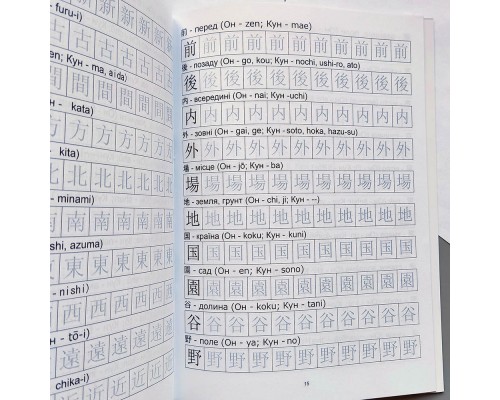 - furu-i)
新 新 新 新
古 古 古 古
en; Кун - ma, aida)
間 間 間 間 間
н - kata)
方 方 方 方 方
- kita)
北 北 北 北 北
- minami)
南 南 南 南 南
shi, azuma)
東 東 東 東 東
- nishi)
西 西 西 西 西
- tō-i)
遠 遠 遠 遠
chika-i)
近 近 近 近
前 - перед (Он - zen; Кун - mae)
前 前 前 前 前 前 前 前 前 前
後 - позаду (Он - go, kou; Кун - nochi, ushi-ro, ato)
後 後 後 後 後 後 後 後 後 後
内 - всередині (Он - nai; Кун -uchi)
内 内 内 内 内 内 内 内 内 内
外 - зовні (Он - gai, ge; Кун - soto, hoka, hazu-su)
外 外 外 外 外 外 外 外 外 外
場 - місце (Он - jō; Кун - ba)
場 場 場 場 場 場 場 場 場 場
地 - земля, грунт (Он - chi, ji; Кун - --)
地 地 地 地 地 地 地 地 地 地
国 - країна (Он - koku; Кун - kuni)
国 国 国 国 国 国 国 国 国 国
園 - сад (Он - en; Кун - sono)
園 園 園 園 園 園 園 園 園 園
谷 - долина (Он - koku; Кун - tani)
谷 谷 谷 谷 谷 谷 谷 谷 谷 谷
野 - поле (Он - ya; Кун - no)
野 野 野 野 野 野 野 野 野 野